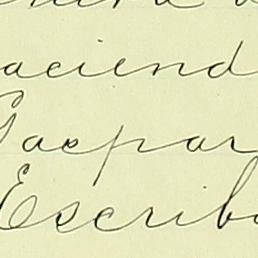 aciend
Gaspar
Escriba